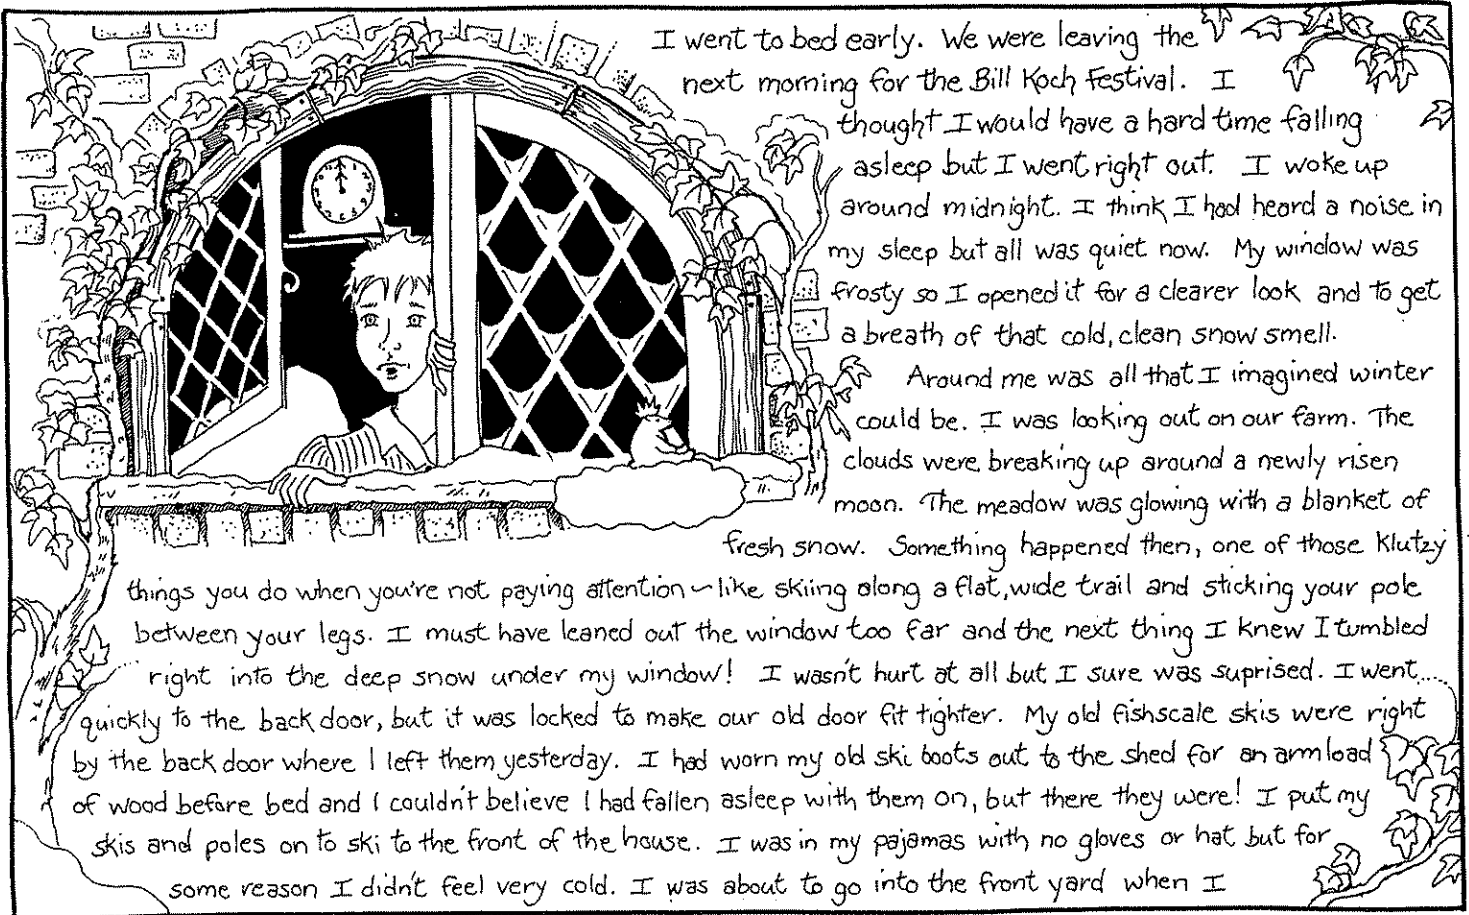 I went to bed early. We were leaving the
next morning for the Bill Koch Festival. I
thought I would have a hard time falling
asleep but I went right out. I woke up
around midnight. I think I had heard a noise in
my sleep but all was quiet now. My window was
frosty so I opened it for a clearer look and to get
a breath of that cold, clean snow smell.
Around me was all that I imagined winter
could be. I was looking out on our farm. The
clouds were breaking up around a newly risen
moon. The meadow was glowing with a blanket of
fresh snow. Something happened then, one of those Klutzy
things you do when you're not paying attention ~ like skiing along a flat, wide trail and sticking your pole
between your legs. I must have leaned out the window too far and the next thing I knew I tumbled
right into the deep snow under my window! I wasn't hurt at all but I sure was suprised. I went
quickly to the back door, but it was locked to make our old door fit tighter. My old fishscale skis were right
by the back door where I left them yesterday. I had worn my old ski boots out to the shed for an armload
of wood before bed and I couldn't believe I had fallen asleep with them on, but there they were! I put my
skis and poles on to ski to the front of the house. I was in my pajamas with no gloves or hat but for
some reason I didn't feel very cold. I was about to go into the front yard when I